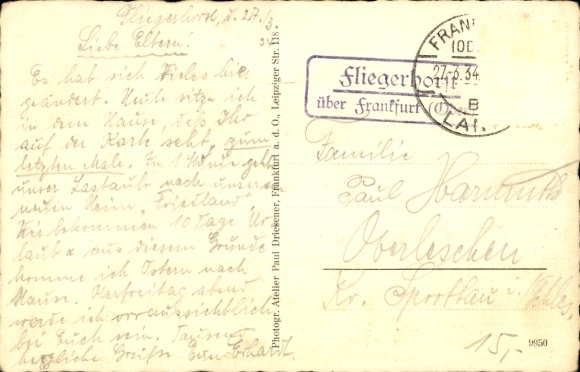 Fliegerhorst, d. 27./3.
34
Liebe Eltern.
Es hat sich Vieles hier
geändert. Heute sitze ich
in dem Hause, das Ihr
auf der Karte seht, zum
letzten Male. In 1 Stunde geht
unser Lastauto nach unserem
neuen Heim "Friedland".
Wir bekommen 10 Tage Ur-
laub & aus diesem Grunde
komme ich Ostern nach
Hause. Karfreitag abend
werde ich vorraussichtlich
bei Euch sein. Tausend
herzliche Grüße Euer Erhardt.
Photogr. Atelier Paul Driesener, Frankfurt a. d. O., Leipziger Str. 118.
Fliegerhorst
über Frankfurt (Oder)
FRAN
(OD
27.3.34
B
LA
Familie
Paul
Oberleschen
Kr. Sprottau
15,-
9950